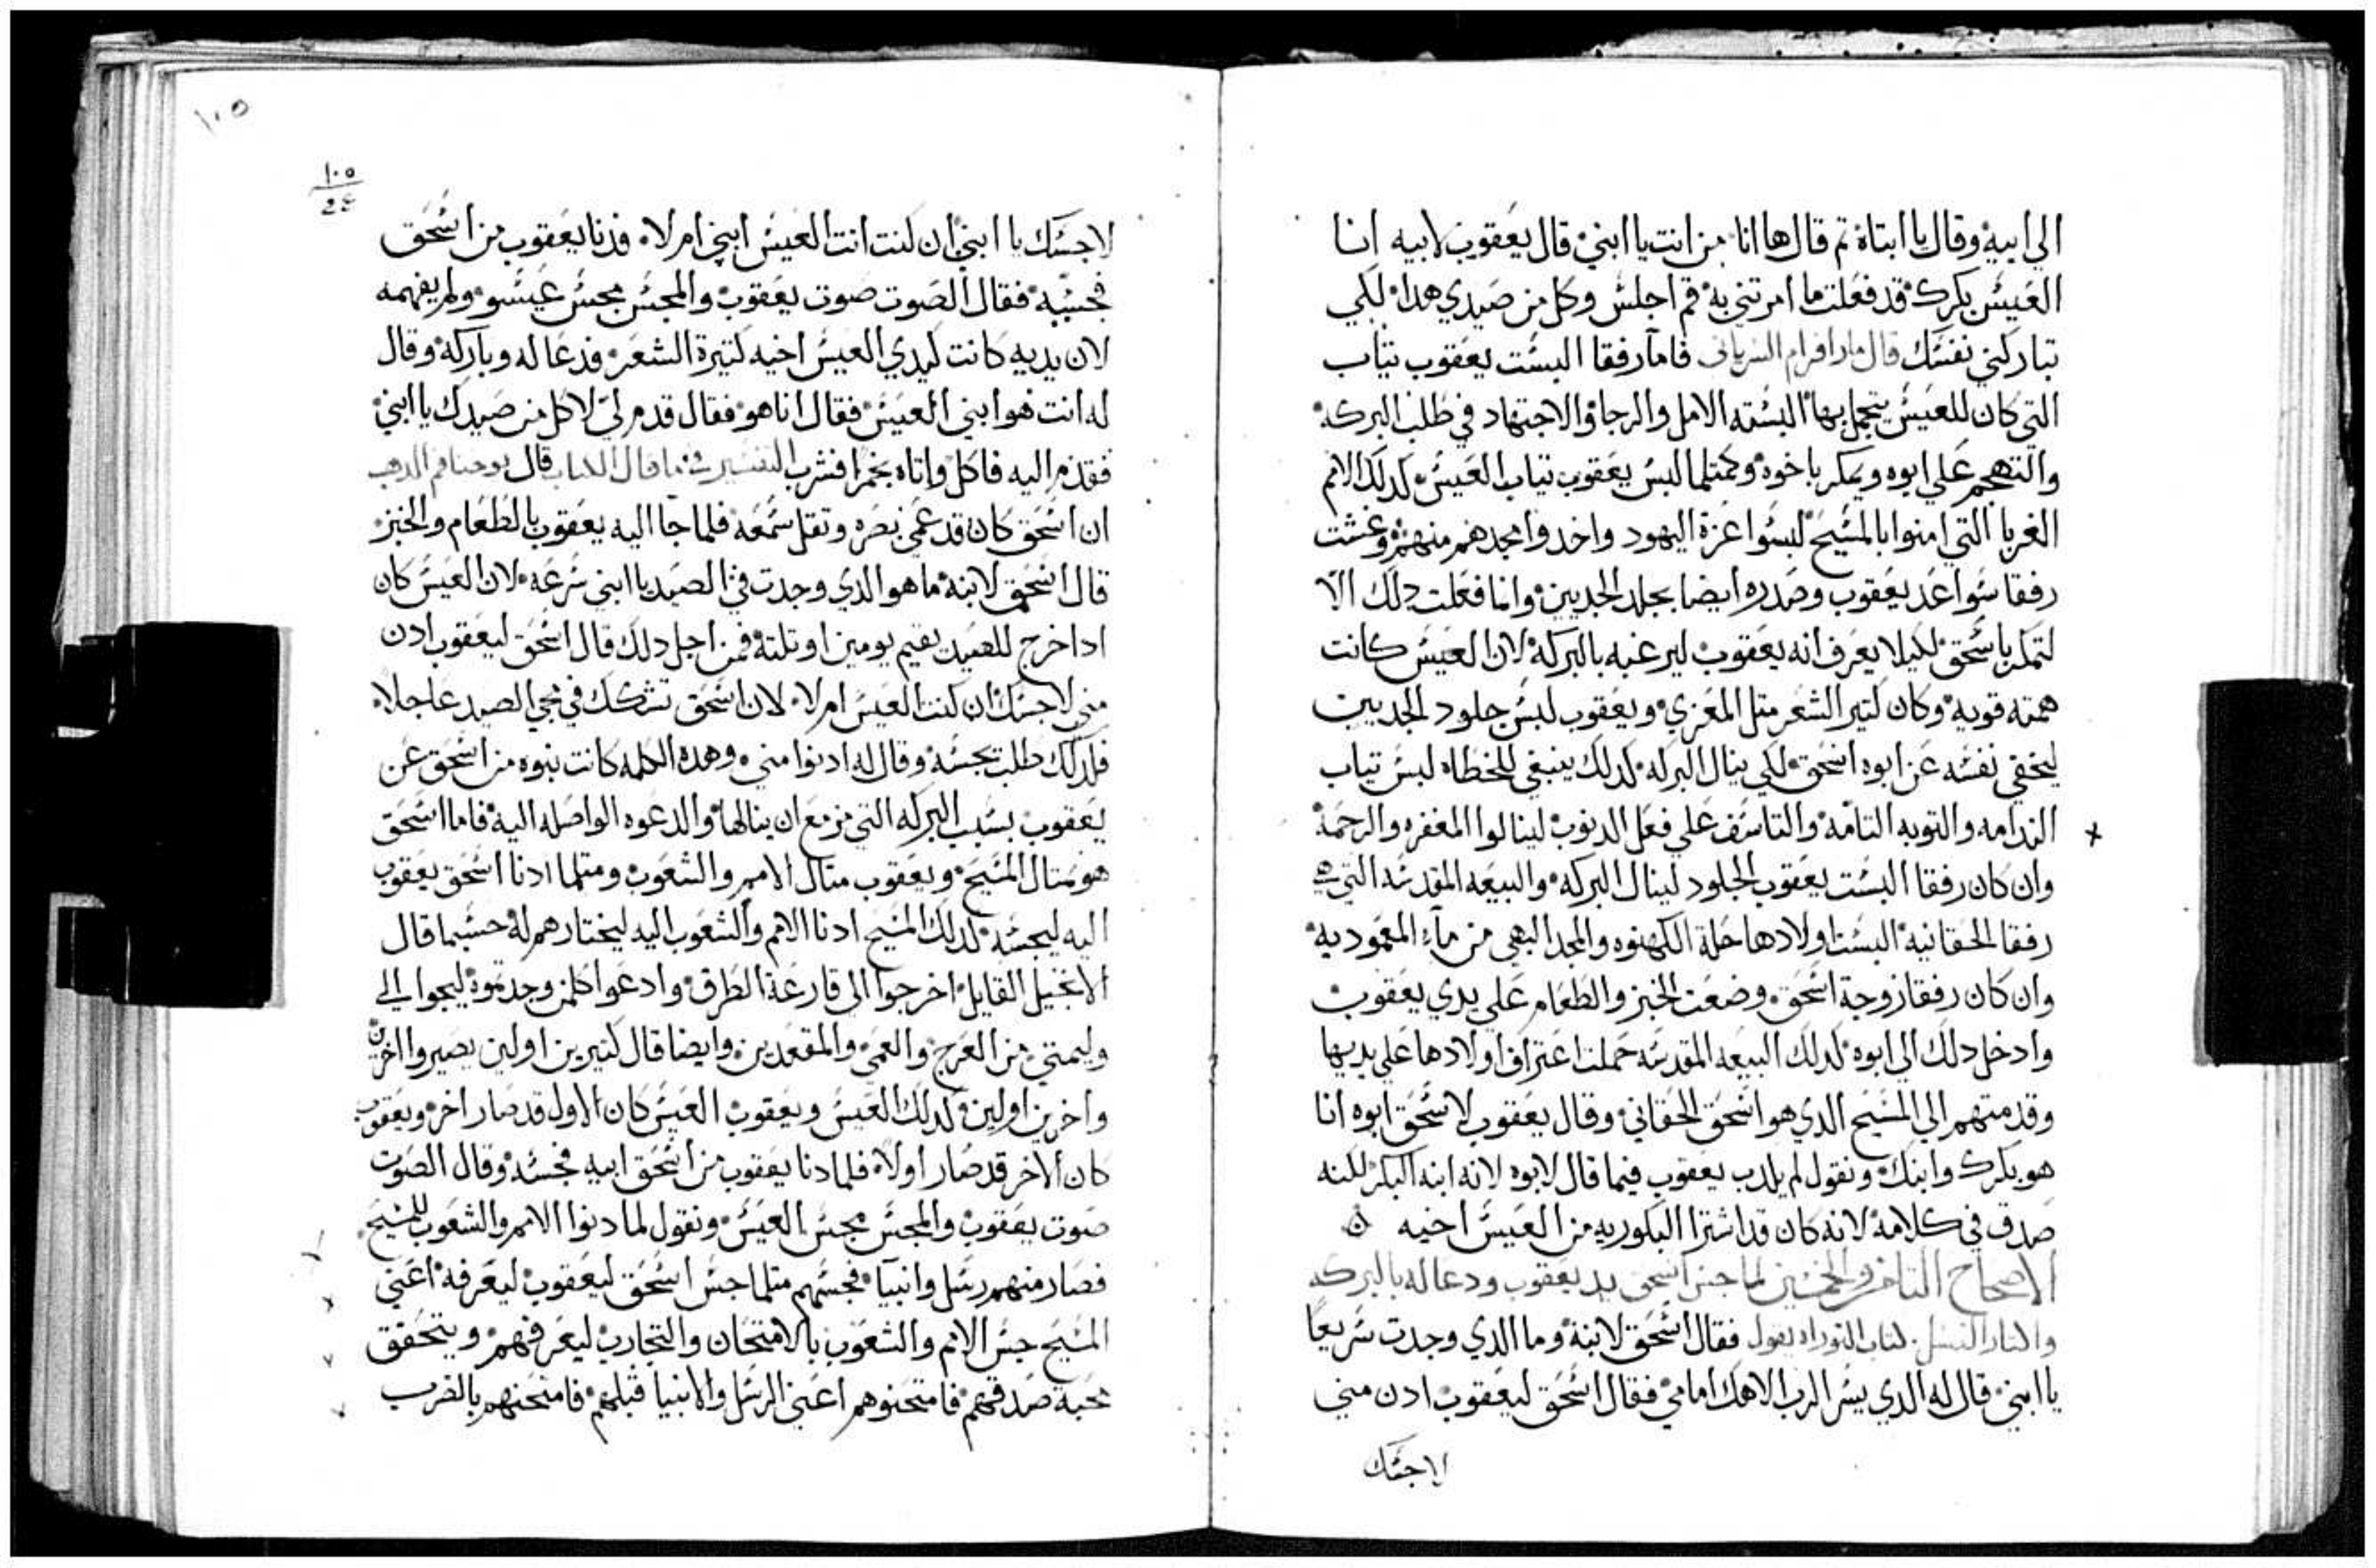 الي ابيه وقال يا ابتاه تم قال ها انا من انت يا ابني قال يعقوب لابيه انا
العيس بكرك قد فعلت ما امرتني به قم اجلس وكل من صيدي هدا لكي
تباركني نفسك قال مار افرام السرياني فاما رفقا البست يعقوب تياب
التي كان للعيس يتجمل بها البسته الامل والرجا والاجتهاد في طلب البركه
والتهجم علي ابوه ويمكر باخوه وكمتلما البس يعقوب تياب العيس كدلك الامم
الغربا التي امنوا بالمسيح لبسوا عزة اليهود واخدوا مجدهم منهم وغشت
رفقا سواعد يعقوب وصدره ايضا بجلد الجديين وانما فعلت دلك الا
لتمكر باسحق لكيلا يعرف انه يعقوب ليرغبه بالبركه لان العيس كانت
همته قويه وكان كتير الشعر متل المعزي ويعقوب لبس جلود الجديين
ليخفي نفسه عن ابوه اسحق لكي ينال البركه كدلك ينبغي للخطاه لبس تياب
الندامه والتوبه التامه والتاسف علي فعل الدنوب لينالوا المغفره والرحمة
وان كان رفقا البست يعقوب الجلود لينال البركه والبيعه المقدسه التي هي
رفقا الحقانيه البست اولادها حلة الكهنوه والمجد البهي من ماء المعموديه
وان كان رفقا زوجة اسحق وضعت الخبز والطعام علي يدي يعقوب
وادخل دلك الي ابوه كدلك البيعه المقدسه حملت اعتراف اولادها علي يديها
وقدمتهم الي المسيح الدي هو اسحق الحقاني وقال يعقوب لاسحق ابوه انا
هو بكرك وابنك ونقول لم يكدب يعقوب فيما قال لابوه لانه ابنه البكر لكنه
صدق في كلامه لانه كان قد اشترا البكوريه من العيس اخيه
الاصحاح التامن والخمسين لما جس اسحق يد يعقوب ودعا له بالبركه
كتاب التوراه يقول فقال اسحق لابنه وما الدي وجدت سريعا
يا ابني قال له الدي يسر الرب الاهك امامي فقال اسحق ليعقوب ادن مني
لاجسك
١٠٥
١٠٥
24
لاجسك يا ابني ان كنت انت العيس ابني ام لا فدنا يعقوب من اسحق
فجسه فقال الصوت صوت يعقوب والمجس مجس عيسو ولم يفهمه
لان يديه كانت كيدي العيس اخيه كتيرة الشعر فدعا له وباركه وقال
له انت هو ابني العيس فقال انا هو فقال قدم لي لاكل من صيدك يا ابني
فقدم اليه فاكل واتاه بخمر فشرب التفسير في ما قال الكتاب قال يوحنا فم الدهب
ان اسحق كان قد عمي بصره وتقل سمعه فلما جا اليه يعقوب بالطعام والخبز
قال اسحق لابنه ما هو الدي وجدت في الصيد يا ابني سرعه لان العيس كان
ادا خرج للصيد يقيم يومين او تلته فمن اجل دلك قال اسحق ليعقوب ادن
مني لاجسك ان كنت العيس ام لا لان اسحق تشكك في مجي الصيد عاجلا
فلدلك طلب يجسه وقال له ادنوا مني وهده الكلمه كانت نبوه من اسحق عن
يعقوب بسبب البركه التي مزمع ان ينالها والدعوه الواصله اليه فاما اسحق
هو متال المسيح ويعقوب متال الامم والشعوب ومتلما ادنا اسحق يعقوب
اليه ليجسه كدلك المسيح ادنا الامم والشعوب اليه ليختارهم له حسبما قال
الانجيل القايل اخرجوا الي قارعة الطرق وادعوا كلمن وجدتموه ليجوا الي
وليمتي من العرج والعمي والمقعدين وايضا قال كتيرين اولين يصيروا اخرين
واخرين اولين وكدلك العيس ويعقوب العيس كان الاول قد صار اخر ويعقوب
كان الاخر قد صار اولا فلما دنا يعقوب من اسحق ابيه فجسه وقال الصوت
صوت يعقوب والمجس مجس العيس ونقول لما دنوا الامم والشعوب للمسيح
فصار منهم رسل وانبيا فجسهم متلما جس اسحق ليعقوب ليعرفه اعني
المسيح جس الامم والشعوب بالامتحان والتجارب ليعرفهم ويتحقق
محبة صدقهم فامتحنوهم اعني الرسل والانبيا قبلهم فامتحنهم بالضرب